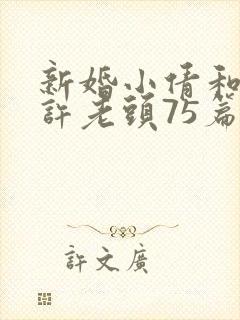 新婚小倩和
許老頭75篇
許文廣